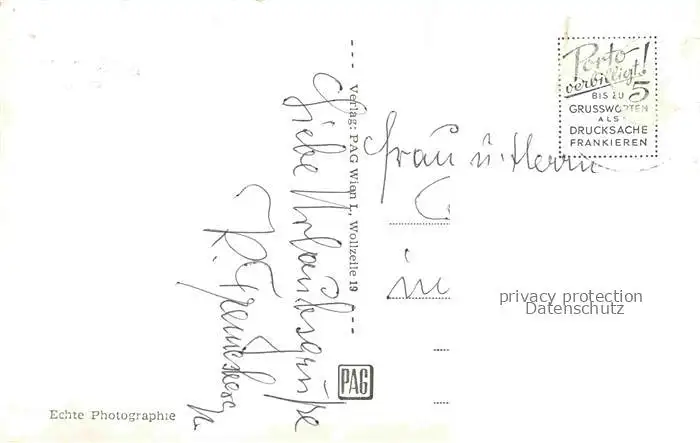 Porto
verbilligt!
BIS ZU 5
GRUSSWORTEN
ALS
DRUCKSACHE
FRANKIEREN
Frau u. Herrn
in
Liebe Urlaubsgrüße
Verlag: PAG Wien I., Wollzeile 19
PAG
Echte Photographie
privacy protection
Datenschutz